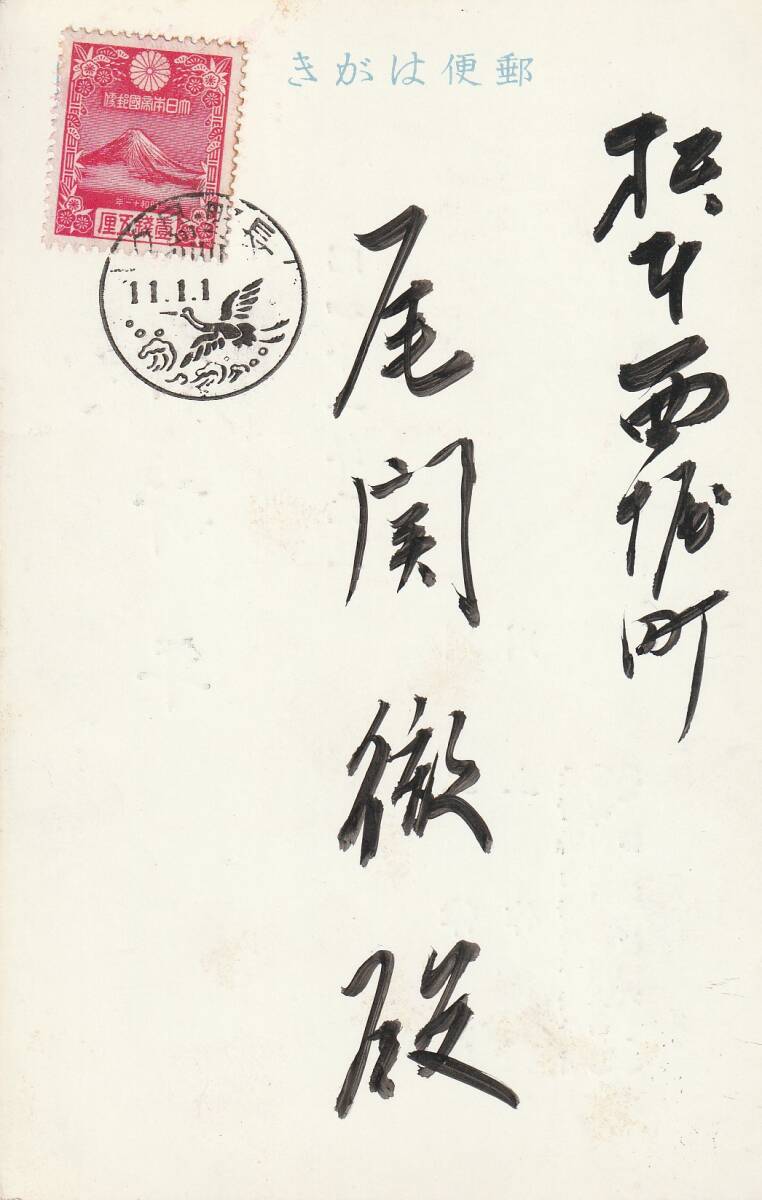 郵便はがき
大日本帝國郵便
昭和十一年
壹錢五厘
11.1.1
松本西堀町
尾関徹殿